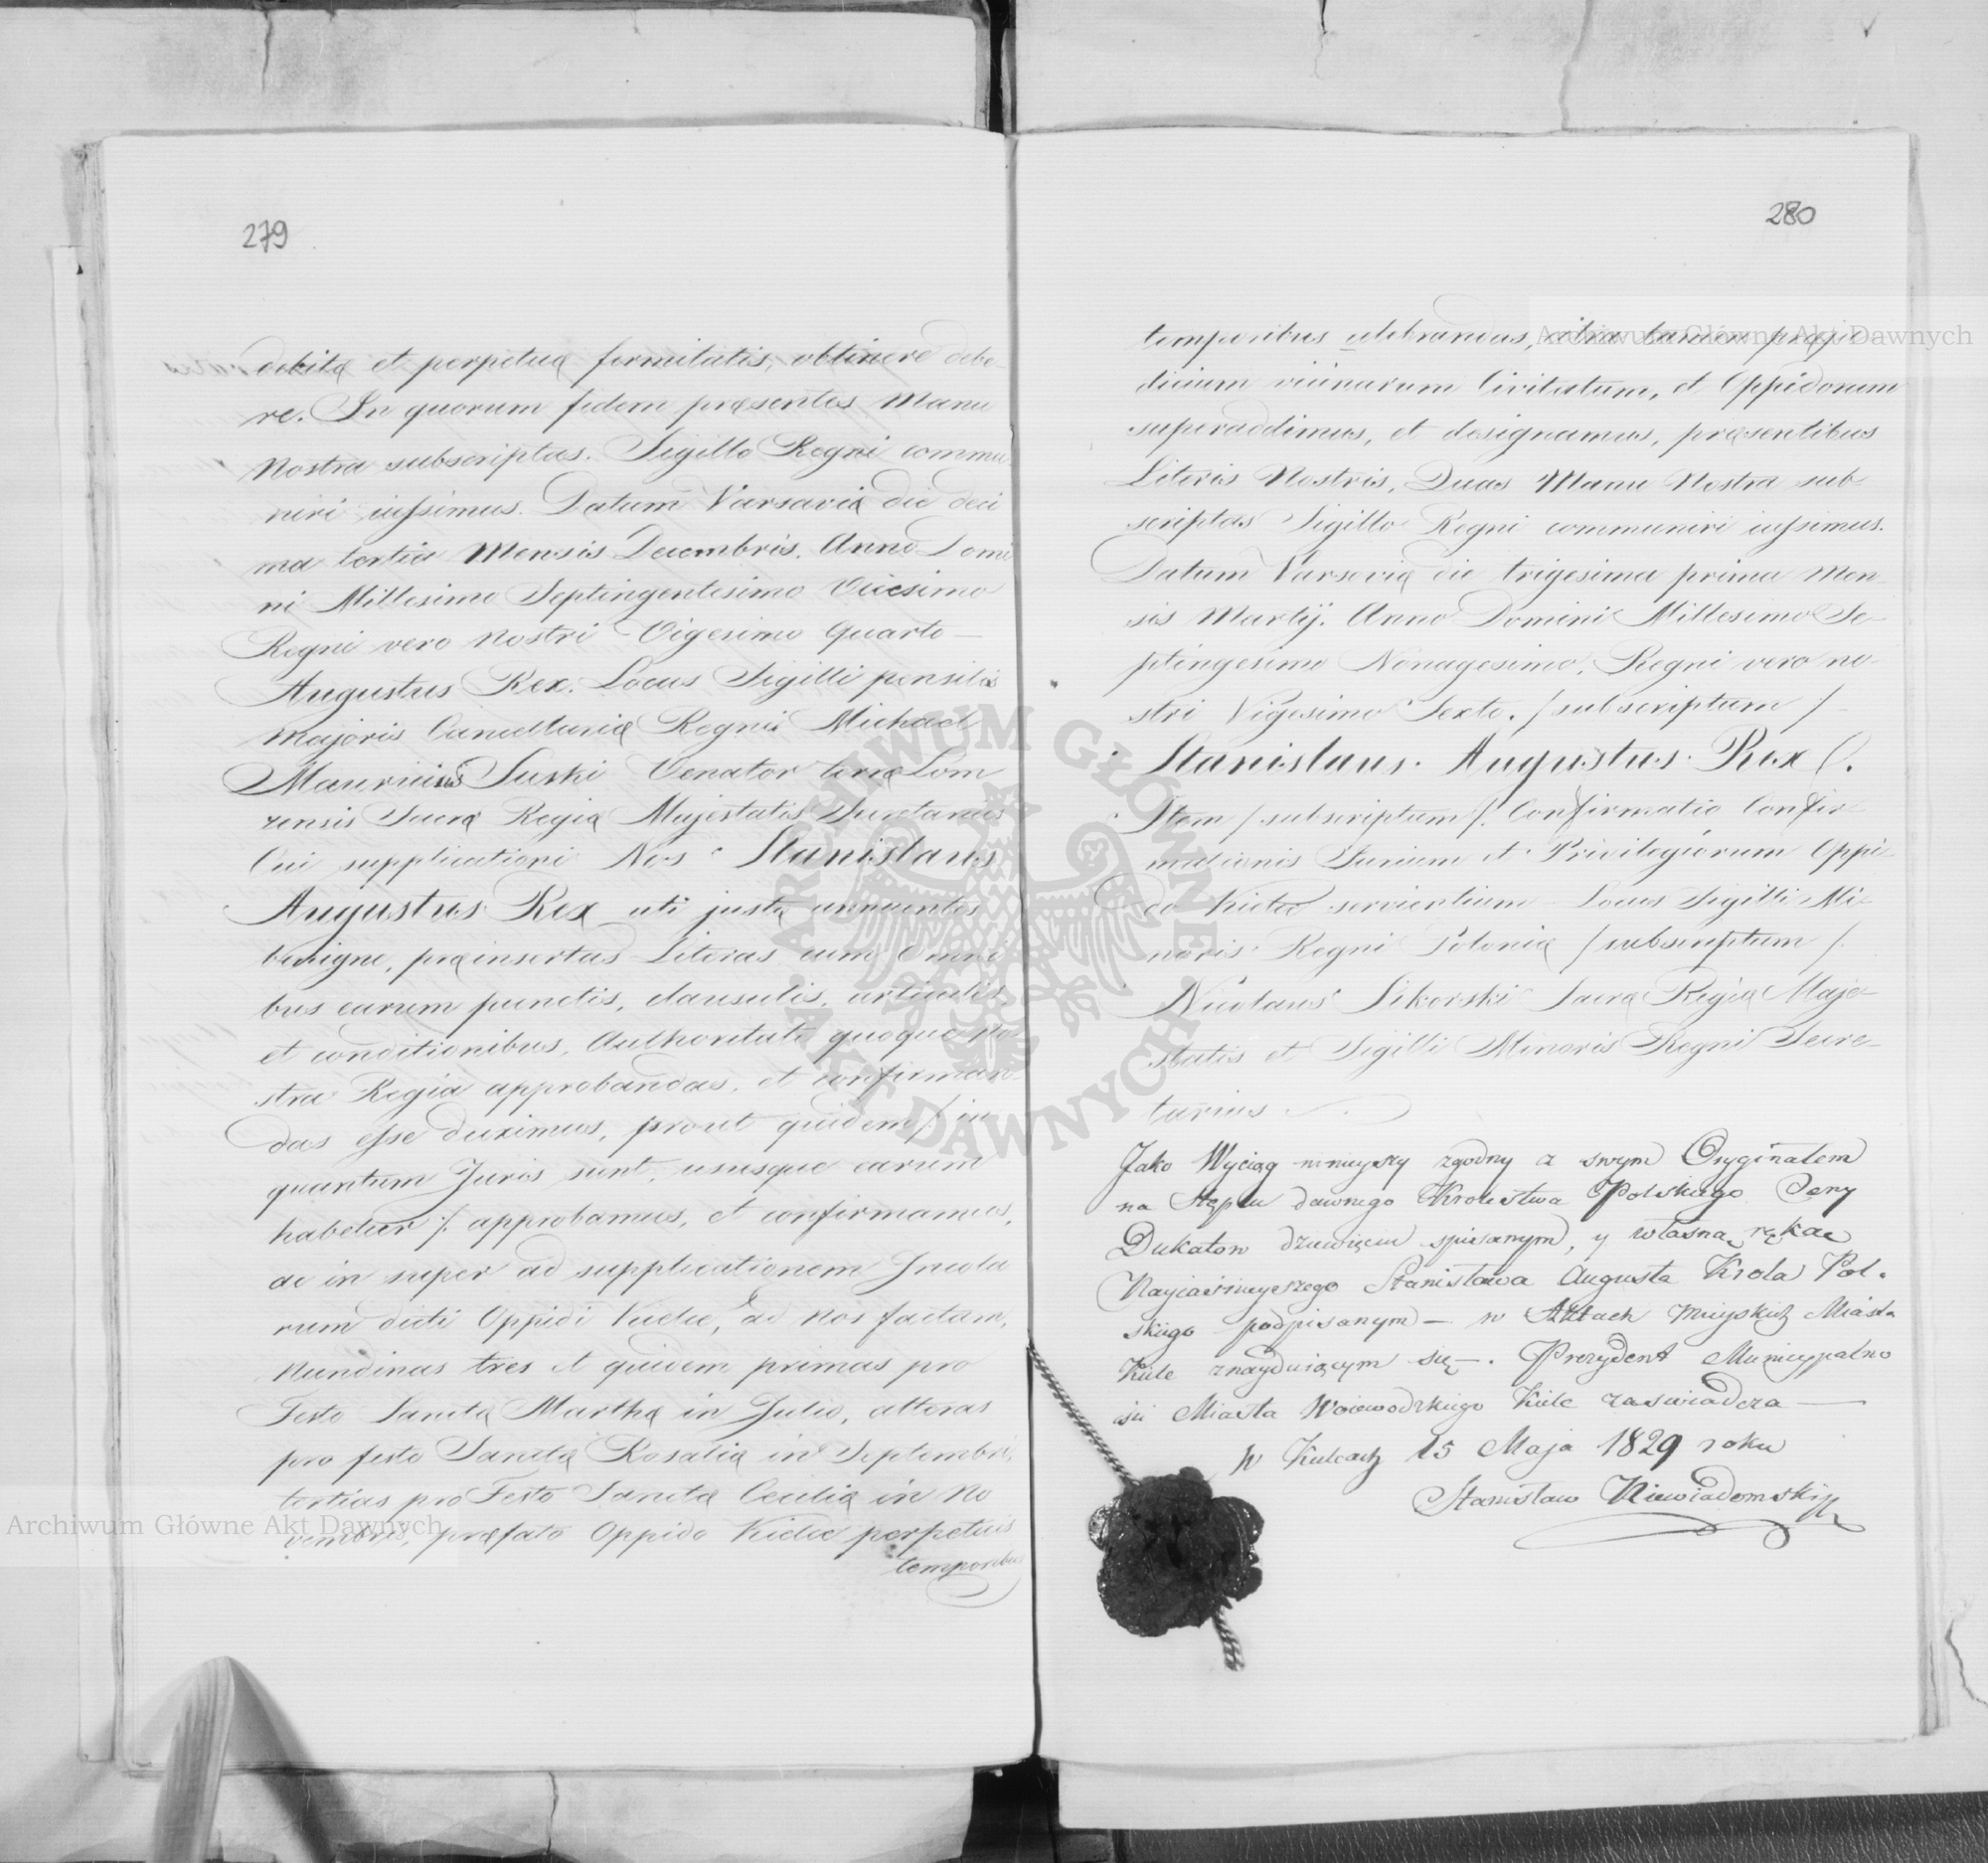 279
debitæ et perpetuæ firmitatis, obtinere debe-
re. In quorum fidem præsentes Manu
Nostra subscriptas. Sigillo Regni commu
niri iussimus. Datum Varsaviæ die deci
ma tertia Mensis Decembris. Anno Domi
ni Millesimo Septingentesimo Vicesimo
Regni vero nostri Vigesimo Quarto —
Augustus Rex. Locus Sigilli pensilis
Majoris Cancellariæ Regni Michael
Mauricius Suski Venator terræ Lom
zensis Sacræ Regiæ Majestatis Secretarius
Cui supplicationi Nos Stanislaus
Augustus Rex uti justæ annuentes
benigne, præinsertas Literas cum Omni
bus earum punctis, clausulis, articulis,
et conditionibus, Authoritate quoque No
stra Regia approbandas, et confirman-
das esse duximus, prout quidem /: in
quantum Juris sunt, ususque earum
habetur :/ approbamus, et confirmamus,
ac in super ad supplicationem Incola
rum dicti Oppidi Kielce, ad Nos factam,
Nundinas tres et quidem primas pro
Festo Sanctæ Marthæ in Julio, alteras
pro festo Sanctæ Rosaliæ in Septembri,
tertias pro Festo Sanctæ Cecilia in No
vembri, præfato Oppido Kielce perpetuis
temporibus
280
temporibus celebrandas, citra tamen præju-
dicium vicinarum Civitatum, et Oppidorum
superaddimus, et designamus, præsentibus
Literis Nostris, Quas Manu Nostra sub
scriptas Sigillo Regni communiri iussimus.
Datum Varsoviæ die trigesima prima Men
sis Martij. Anno Domini Millesimo Se-
ptingesimo Nonagesimo, Regni vero no-
stri Vigesimo Sexto. /subscriptum/
Stanislaus Augustus Rex
Item /subscriptum/. Confirmatio Confir
mationis Jurium et Privilegiorum Oppi-
do Kielce servientium Locus Sigilli Mi-
noris Regni Poloniæ /subscriptum/
Nicolaus Sikorski Sacræ Regiæ Maje-
statis et Sigilli Minoris Regni Secre-
tarius
Jako Wyciąg ninieyszy zgodny z swym Oryginałem
na Stęplu dawnego Krolestwa Polskiego Ceny
Dukatow dziewięciu spisanym, y własną ręką
Nayiaśnieyszego Stanisława Augusta Krola Pol.
skiego podpisanym — w Aktach Mieyskich Miasta
Kielc znayduiącym się —. Prezydent Municypalno
ści Miasta Woiewodzkiego Kielc zaswiadcza —
w Kielcach 15 Maja 1829 roku
Stanisław Niewiadomski
Archiwum Główne Akt Dawnych
Archiwum Główne Akt Dawnych
ARCHIWUM GŁÓWNE
AKT DAWNYCH